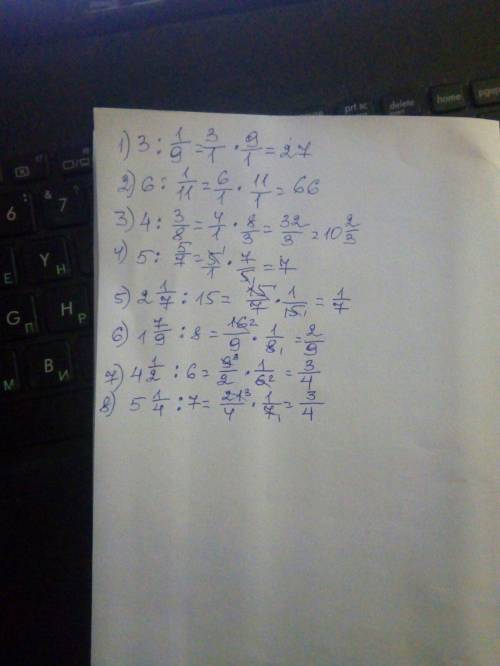 prt sc
delete
home
pgup
1) 3 : 1/9 = 3/1 · 9/1 = 27
2) 6 : 1/11 = 6/1 · 11/1 = 66
3) 4 : 3/8 = 4/1 · 8/3 = 32/3 = 10 2/3
4) 5 : 5/7 = 5¹/1 · 7/5₁ = 7
5) 2 1/7 : 15 = 15/7 · 1/15₁ = 1/7
6) 1 7/9 : 8 = 16²/9 · 1/8₁ = 2/9
7) 4 1/2 : 6 = 9³/2 · 1/6² = 3/4
8) 5 1/4 : 7 = 21³/4 · 1/7₁ = 3/4
6
& 7
Е
Y Н
G П
H Р
М
B И